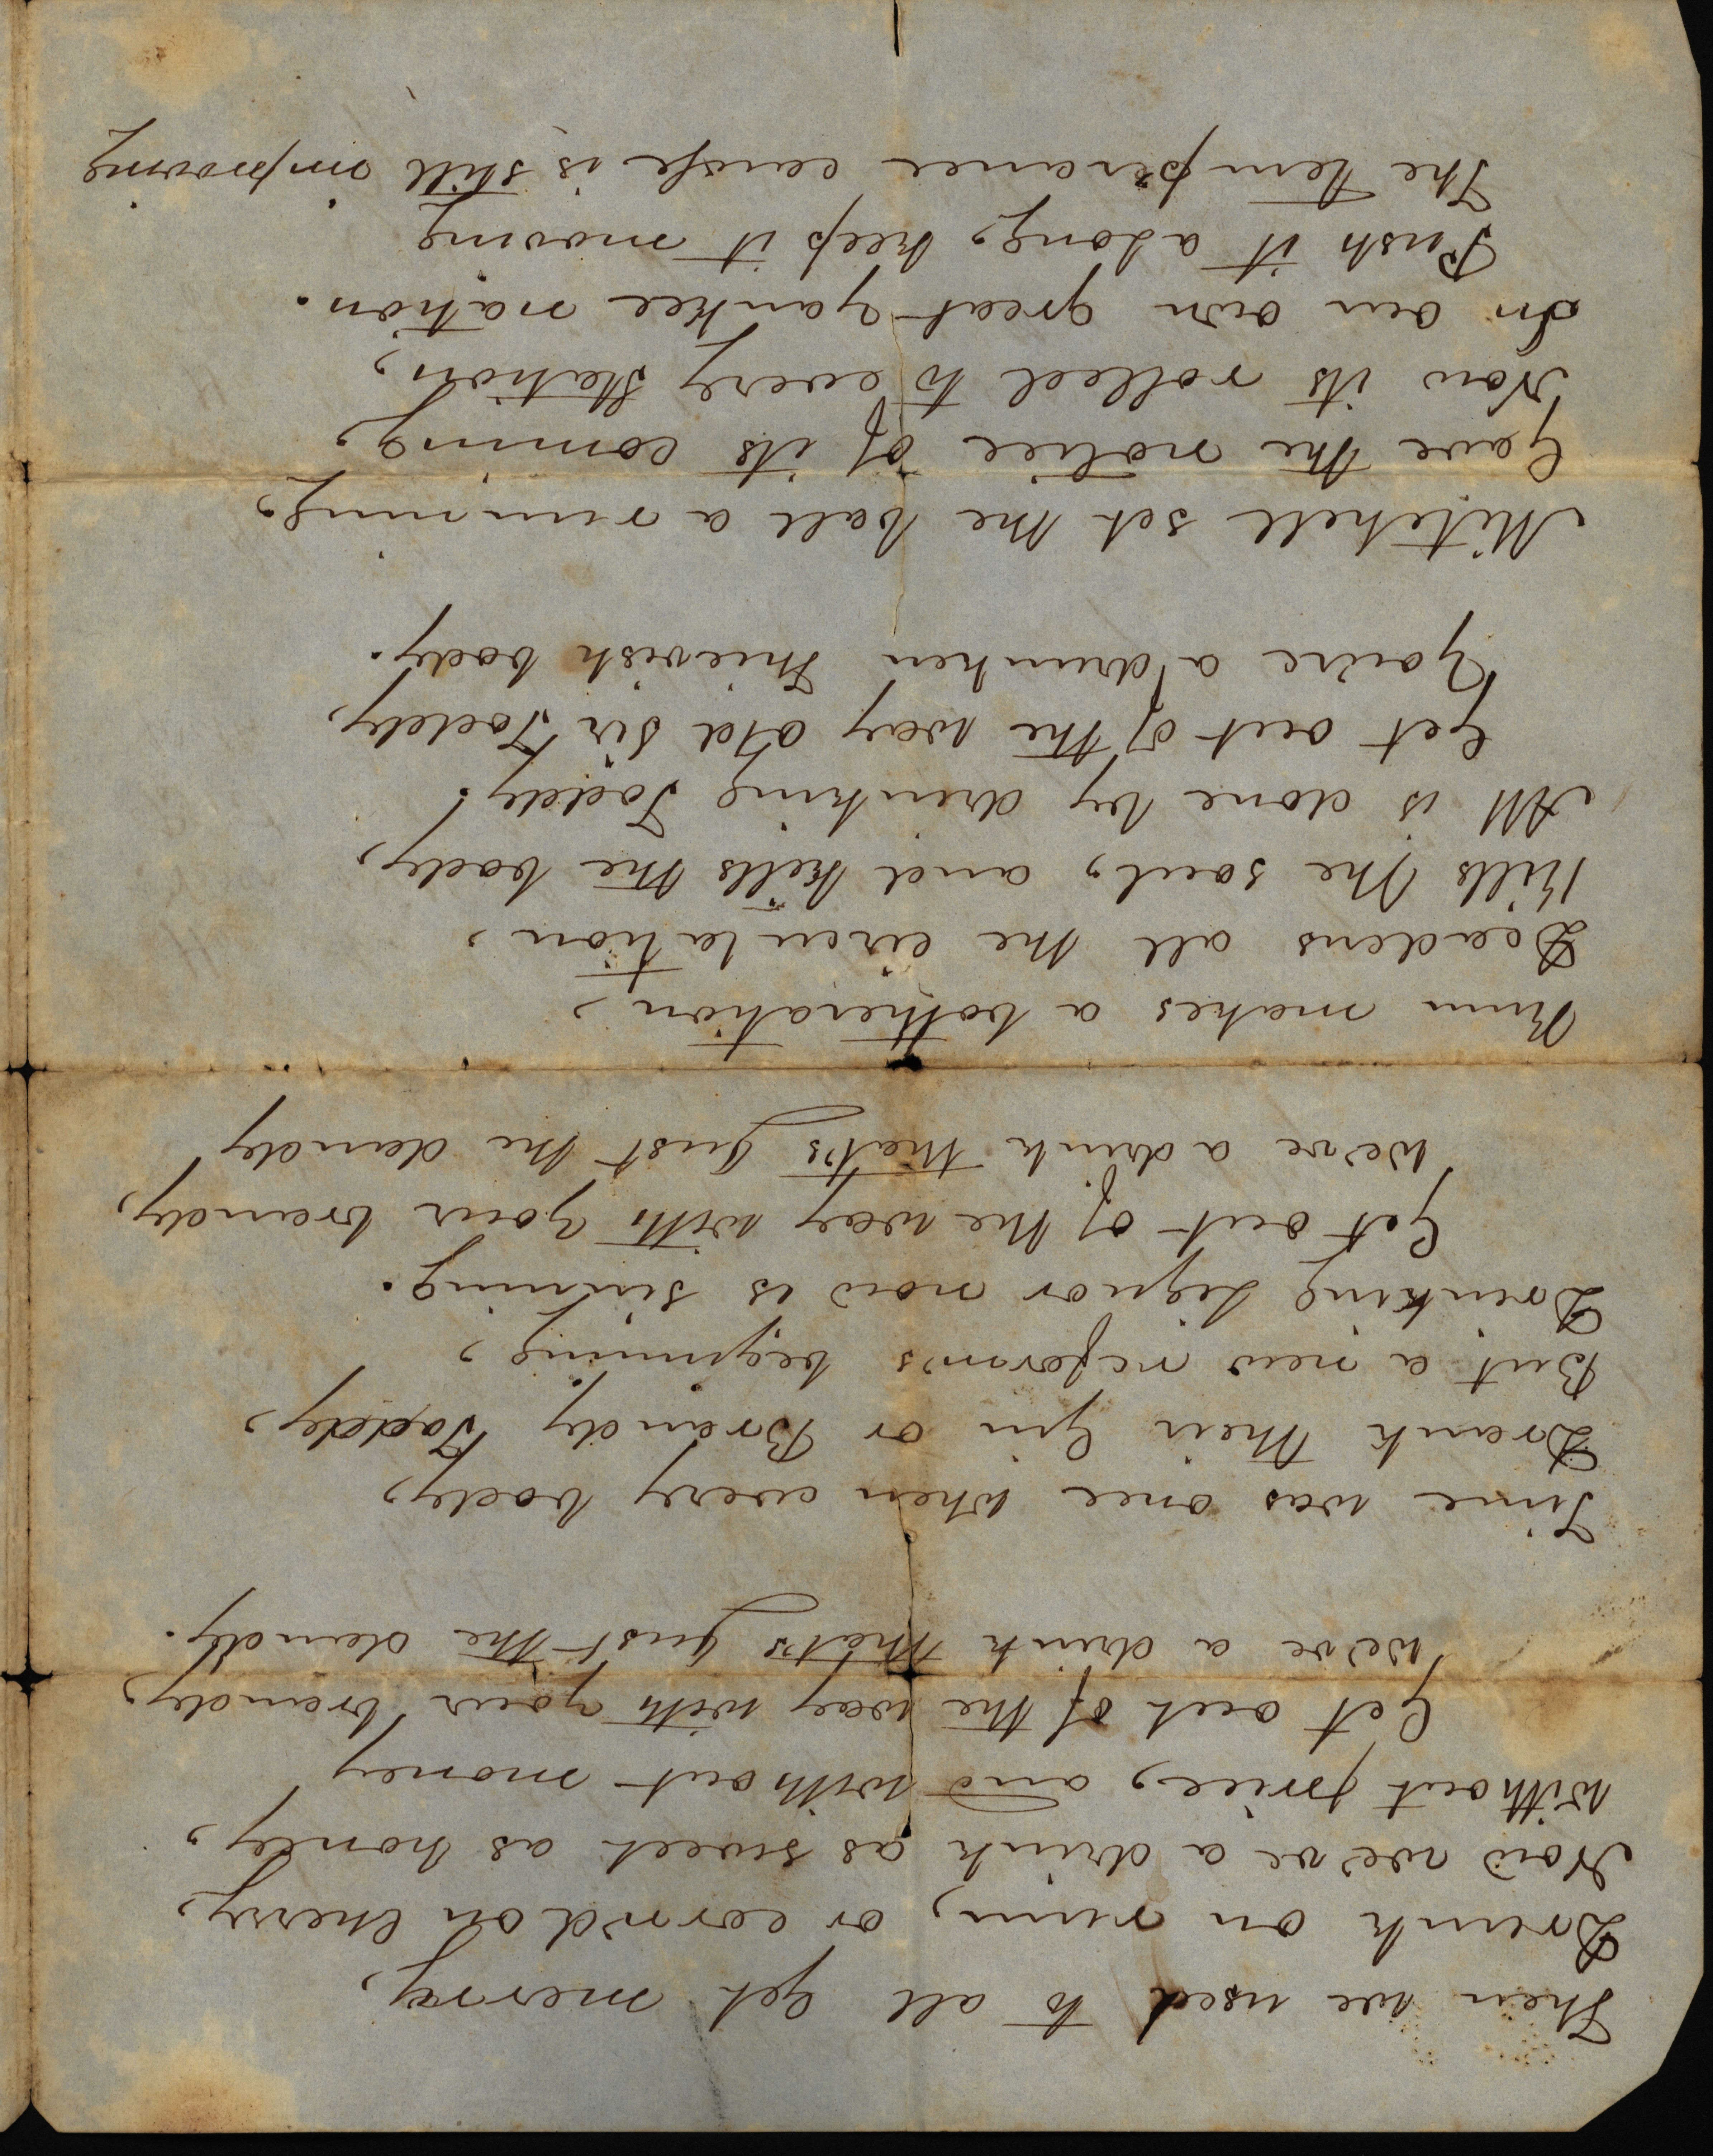 Then we used to all get merry,
Drunk on rum, or corn'd on cherry,
Now we've a drink as sweet as honey,
Without price, and without money
Get out of the way with your brandy,
We've a drink that's just the dandy.
Time was once when every body,
Drank their Gin or Brandy Toddy,
But a new reform's beginning,
Drinking Liquor now is sinning.
Get out of the way with your brandy,
We've a drink that's just the dandy
Rum makes a botheration,
Deadens all the circulation,
Kills the soul, and kills the body,
All is done by drinking Toddy.
Get out of the way old Sir Toddy,
You're a drunken thievish body.
Mitchell set the ball a running,
Gave the notice of its coming,
Now its rolled to every Station,
In our own great Yankee nation.
Push it along, keep it moving
The temperance cause is still improving